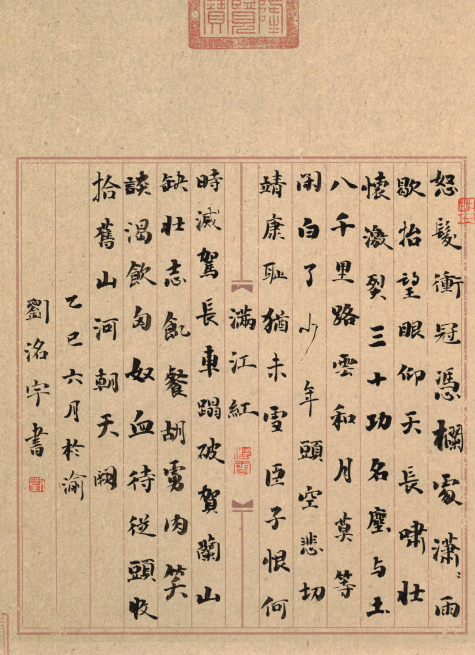 怒髮衝冠憑欄處瀟〻雨
歇抬望眼仰天長嘯壯
懷激裂三十功名塵与土
八千里路雲和月莫等
閒白了少年頭空悲切
靖康恥猶未雪臣子恨何
滿江紅
時滅駕長車蹋破賀蘭山
缺壯志飢餐胡虜肉笑
談渴飲匈奴血待從頭收
拾舊山河朝天闕
乙巳六月於渝
劉洺宇書